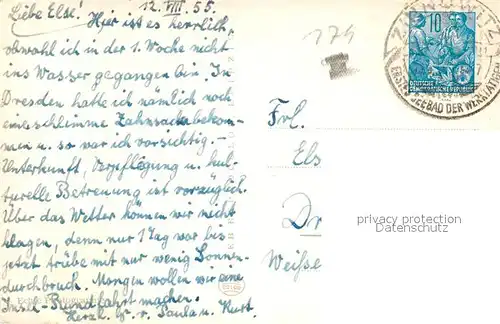 12. VIII. 55.
Liebe Else! Hier ist es herrlich,
obwohl ich in der 1. Woche nicht
ins Wasser gegangen bin. In
Dresden hatte ich nämlich noch
eine schlimme Zahnsache bekom-
men u. so war ich vorsichtig. –
Unterkunft, Verpflegung u. kul-
turelle Betreuung ist vorzüglich.
Über das Wetter können wir nicht
klagen, denn nur 1 Tag war bis
jetzt trübe mit nur wenig Sonnen-
durchbruch. Morgen wollen wir eine
Insel-Rundfahrt machen.
Herzl. Gr. v. Paula u. Kurt.
174
10
DEUTSCHE
DEMOKRATISCHE REPUBLIK
SEEBAD DER WERKTÄTIGEN
Frl.
Els
Dr
Weiße
privacy protection
Datenschutz